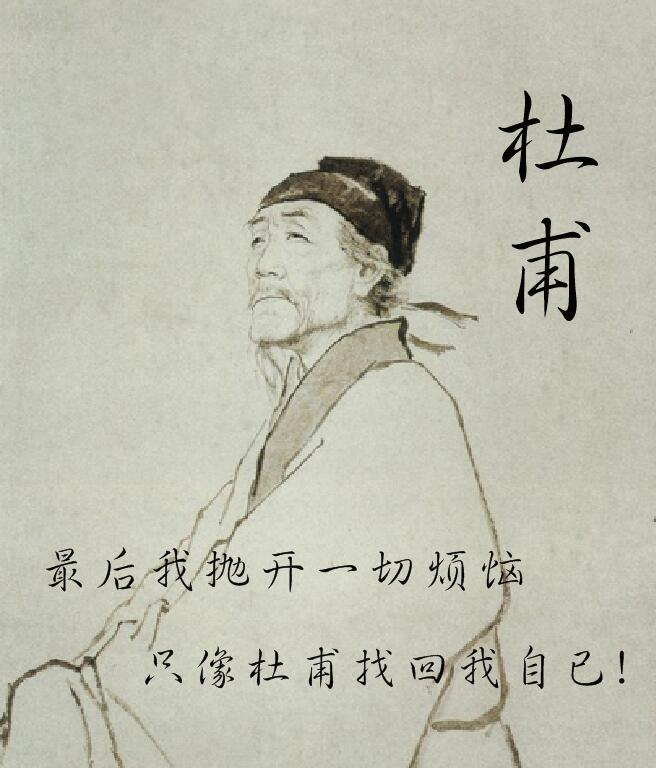 杜甫
最后我抛开一切烦恼
只像杜甫找回我自己！